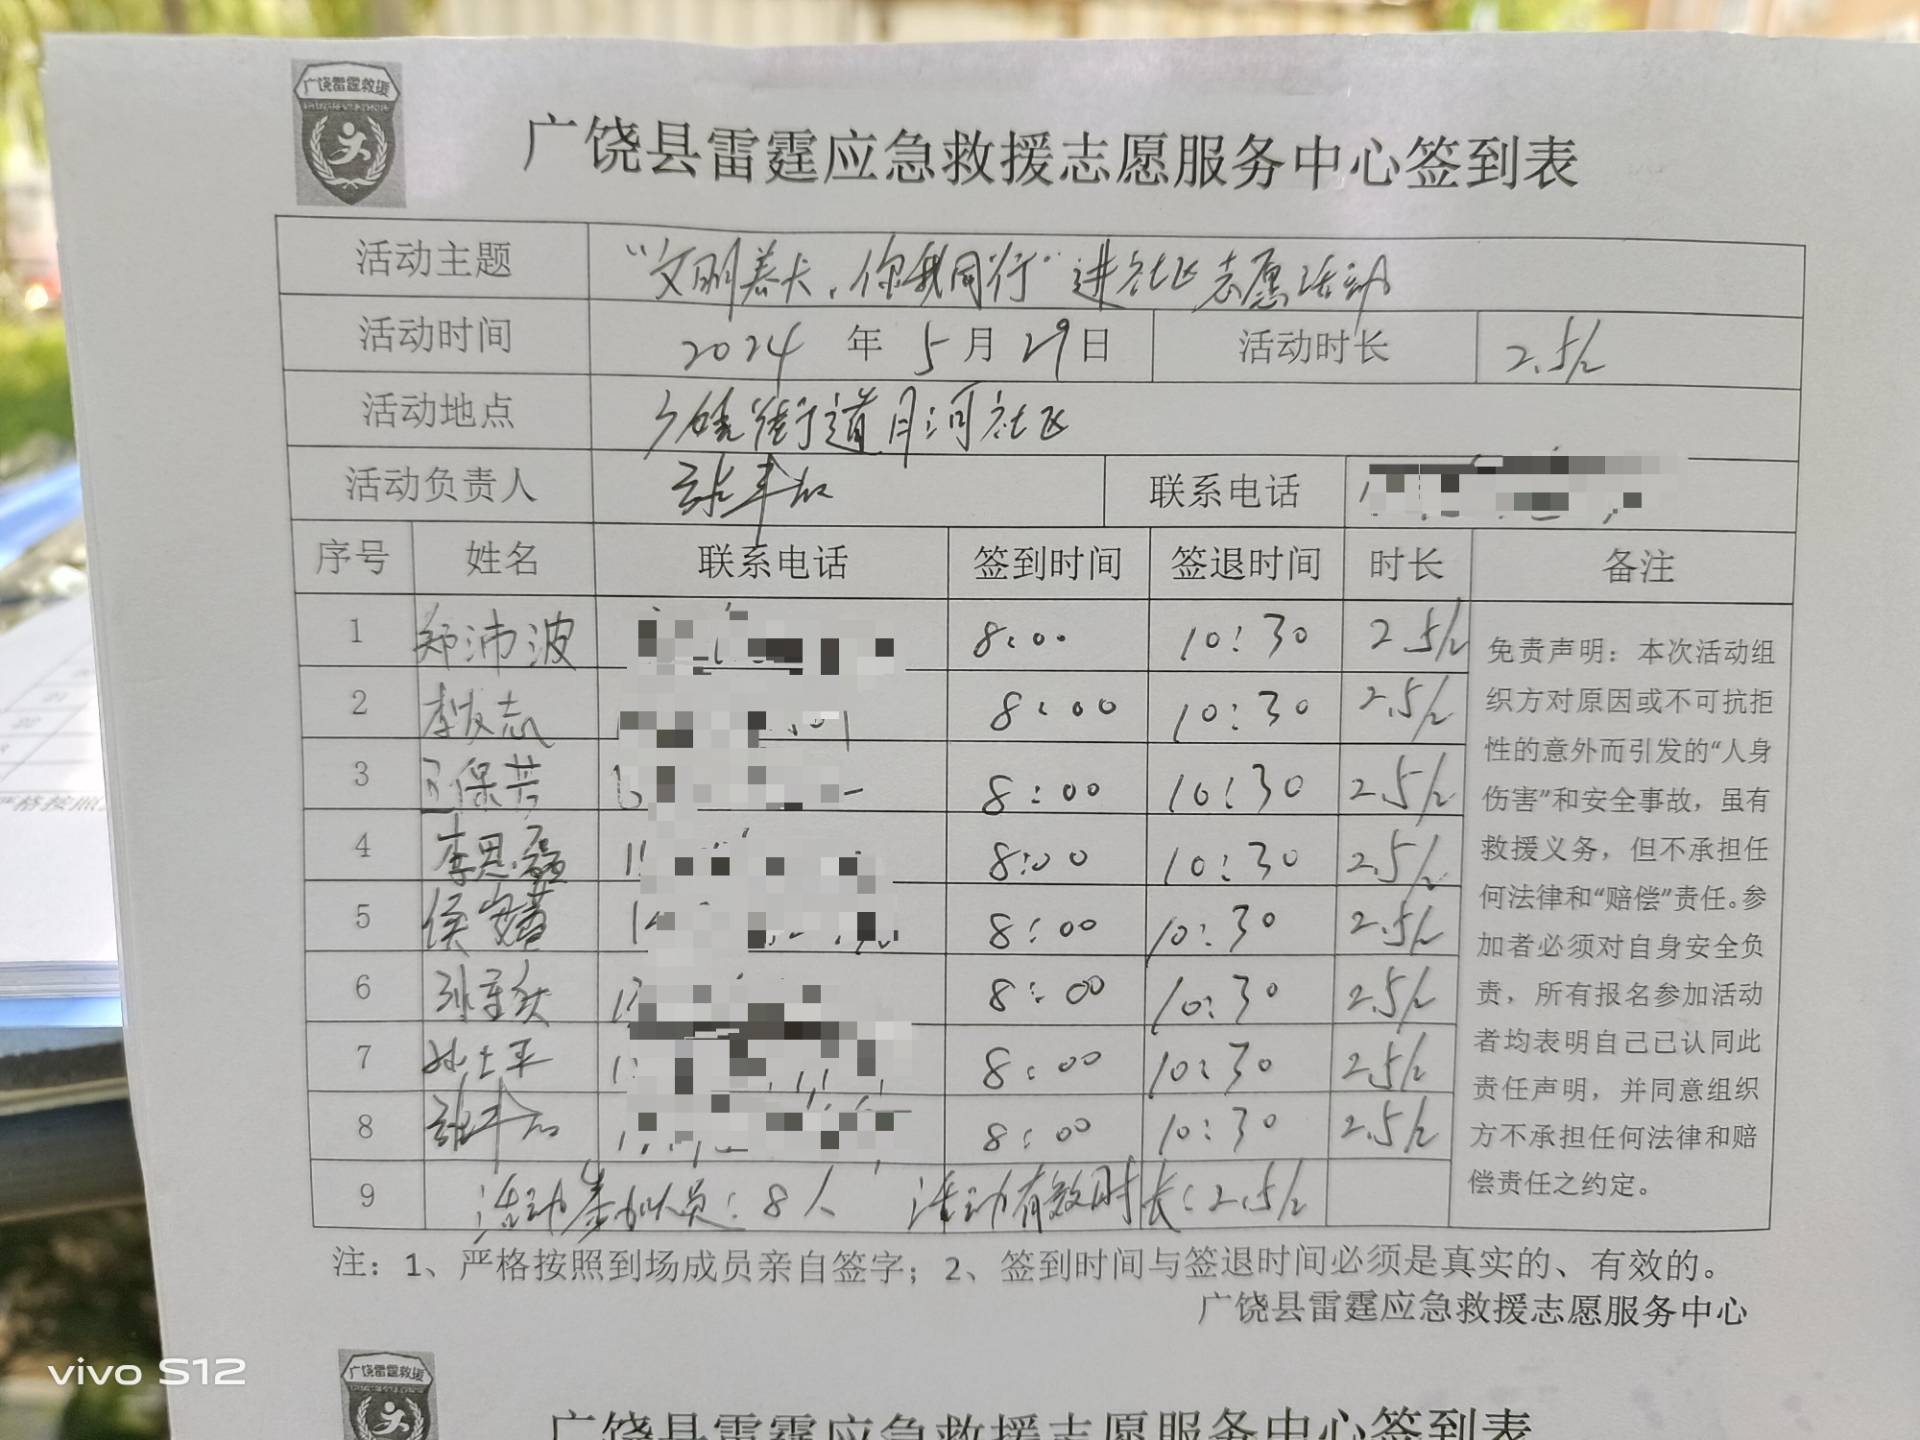 广饶雷霆救援
广饶县雷霆应急救援志愿服务中心签到表
活动主题 “文明养犬，你我同行”进社区志愿活动
活动时间 2024 年 5 月 29 日 活动时长 2.5h
活动地点 广饶街道月河社区
活动负责人 联系电话
序号 姓名 联系电话 签到时间 签退时间 时长 备注
1 郑沛波 8:00 10:30 2.5h
2 李友志 8:00 10:30 2.5h
3 8:00 10:30 2.5h
4 李思磊 8:00 10:30 2.5h
5 8:00 10:30 2.5h
6 8:00 10:30 2.5h
7 8:00 10:30 2.5h
8 8:00 10:30 2.5h
9 活动参加队员：8人 活动有效时长：2.5h
免责声明：本次活动组
织方对原因或不可抗拒
性的意外而引发的“人身
伤害”和安全事故，虽有
救援义务，但不承担任
何法律和“赔偿”责任。参
加者必须对自身安全负
责，所有报名参加活动
者均表明自己已认同此
责任声明，并同意组织
方不承担任何法律和赔
偿责任之约定。
注：1、严格按照到场成员亲自签字；2、签到时间与签退时间必须是真实的、有效的。
广饶县雷霆应急救援志愿服务中心
vivo S12
广饶雷霆救援
广饶县雷霆应急救援志愿服务中心签到表